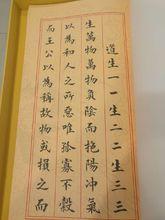 道生一一生二二生三三
生萬物萬物負陰而抱陽沖氣
以為和人之所惡唯孤寡不穀
而王公以為稱故物或損之而